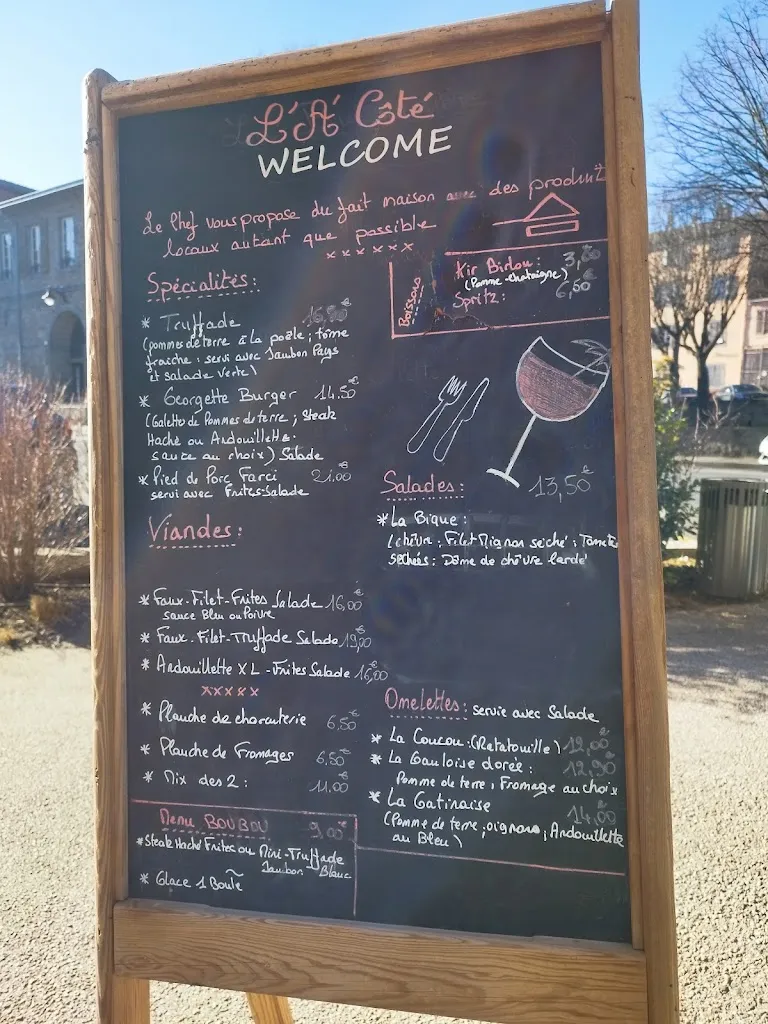 L'A' Côté
WELCOME
Le Chef vous propose du fait maison avec des produits
locaux autant que possible
xxxxxx
Boissons
Kir Birlou: 3,
(Pomme-chataigne)
Spritz: 6,50€
Spécialités:
* Truffade 16,90€
(pommes de terre à la poële; tôme
fraiche: servi avec Jambon Pays
et salade verte)
* Georgette Burger 14.50€
(Galette de Pommes de terre; Steak
Haché ou Andouillette.
sauce au choix) Salade
* Pied de Porc Farci 21.00€
servi avec Frites-Salade
Salades: 13,50€
* La Bique:
(chèvre; Filet Mignon séché; Tomate
séchés: Dôme de chèvre lardé
Viandes:
* Faux-Filet-Frites Salade 16,00€
sauce Bleu ou Poivre
* Faux-Filet-Truffade Salade 19,00€
* Andouillette XL-Frites Salade 16,00€
xxxxx
* Planche de charcuterie 6,50€
* Planche de Fromages 6,50€
* Mix des 2: 11.00€
Omelettes: servie avec Salade
* La Coucou: (Ratatouille) 12,00€
* La Gauloise dorée: 12,90€
Pomme de terre; Fromage au choix
* La Gatinaise 14,00€
(Pomme de terre; oignons; Andouillette
au Bleu)
Menu BOUBOU 9,00€
* Steak Haché Frites ou Mini-Truffade
Jambon Blanc
* Glace 1 Boule